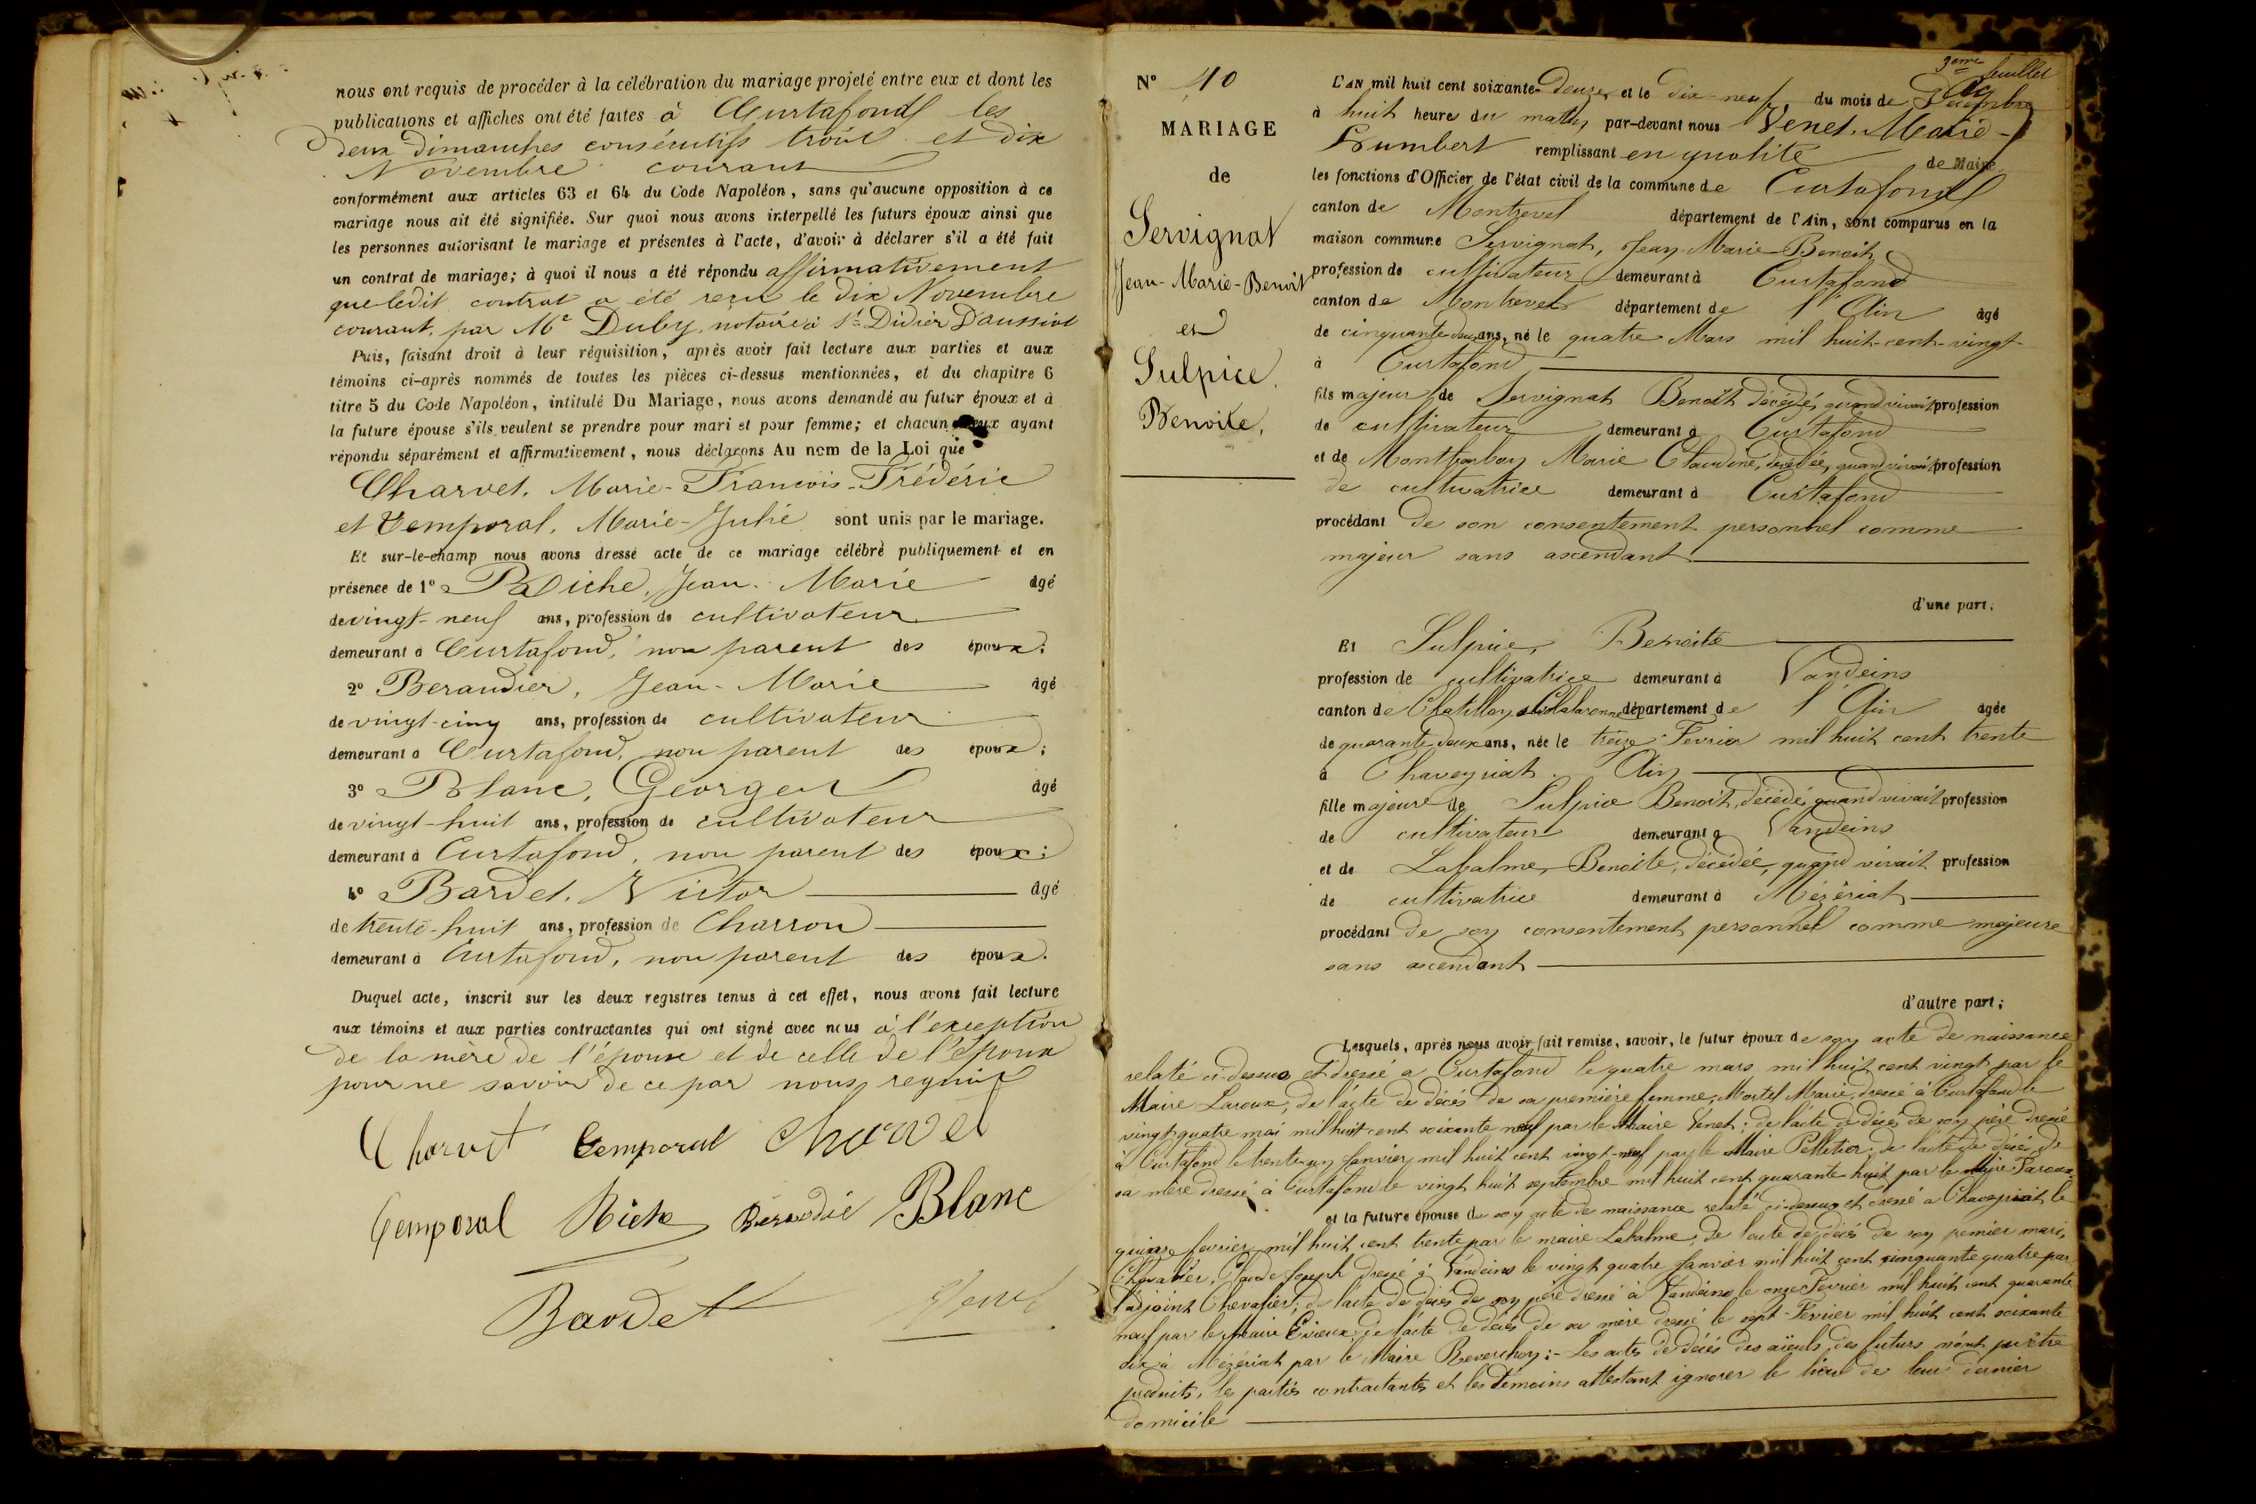 nous ont requis de procéder à la célébration du mariage projeté entre eux et dont les
publications et affiches ont été faites à Curtafond les
deux dimanches consécutifs trois et dix
Novembre courant
conformément aux articles 63 et 64 du Code Napoléon, sans qu'aucune opposition à ce
mariage nous ait été signifiée. Sur quoi nous avons interpellé les futurs époux ainsi que
les personnes autorisant le mariage et présentes à l'acte, d'avoir à déclarer s'il a été fait
un contrat de mariage; à quoi il nous a été répondu affirmativement
que ledit contrat a été reçu le dix Novembre
courant, par Me Duby, notaire à St Didier D'aussiat
Puis, faisant droit à leur réquisition, après avoir fait lecture aux parties et aux
témoins ci-après nommés de toutes les pièces ci-dessus mentionnées, et du chapitre 6
titre 5 du Code Napoléon, intitulé Du Mariage, nous avons demandé au futur époux et à
la future épouse s'ils veulent se prendre pour mari et pour femme; et chacun d'eux ayant
répondu séparément et affirmativement, nous déclarons Au nom de la Loi que
Charvet, Marie-François-Frédéric
et Temporal, Marie-Julie sont unis par le mariage.
Et sur-le-champ nous avons dressé acte de ce mariage célébré publiquement et en
présence de 1° Riche, Jean-Marie âgé
de vingt-neuf ans, profession de cultivateur
demeurant à Curtafond, non parent des époux;
2° Beraudier, Jean-Marie âgé
de vingt-cinq ans, profession de cultivateur
demeurant à Curtafond, non parent des époux;
3° Blanc, Georges âgé
de vingt-huit ans, profession de cultivateur
demeurant à Curtafond, non parent des époux;
4° Bardet, Victor âgé
de trente-huit ans, profession de Charron
demeurant à Curtafond, non parent des époux.
Duquel acte, inscrit sur les deux registres tenus à cet effet, nous avons fait lecture
aux témoins et aux parties contractantes qui ont signé avec nous à l'exception
de la mère de l'épouse et de celle de l'époux
pour ne savoir de ce par nous requis
Charvet Temporal Charvet
Temporal Riche Béraudié Blanc
Bardet Venet
N° 10
MARIAGE
de
Servignat
Jean-Marie-Benoit
et
Sulpice,
Benoite.
9eme feuillet
L'AN mil huit cent soixante-Douze, et le dix-neuf, du mois de Décembre
à huit heure du matin, par-devant nous Venet, Marie-
Humbert remplissant en qualité de Maire
les fonctions d'Officier de l'état civil de la commune de Curtafond
canton de Montrevel département de l'Ain, sont comparus en la
maison commune Servignat, Jean-Marie-Benoit
profession de cultivateur demeurant à Curtafond
canton de Montrevel département de l'Ain âgé
de cinquante deux ans, né le quatre Mars mil huit-cent-vingt
à Curtafond
fils majeur de Servignat Benoit décédé, quand vivait profession
de cultivateur demeurant à Curtafond
et de Montbarbon Marie Claudine, décédée, quand vivait profession
de cultivatrice demeurant à Curtafond
procédant de son consentement personnel comme
majeur sans ascendant
d'une part;
Et Sulpice, Benoite
profession de cultivatrice demeurant à Vandeins
canton de Chatillon s. Chalaronne département de l'Ain âgée
de quarante deux ans, née le treize Fevrier mil huit cent trente
à Chaveyriat. Ain
fille majeure de Sulpice Benoit, décédé, quand vivait profession
de cultivateur demeurant à Vandeins
et de Labalme, Benoite, décédée, quand vivait profession
de cultivatrice demeurant à Mézériat
procédant de son consentement personnel comme majeure
sans ascendant
d'autre part;
Lesquels, après nous avoir fait remise, savoir, le futur époux de son acte de naissance
relaté ci-dessus et dressé a Curtafond le quatre mars mil huit cent vingt par le
Maire Laroux, de l'acte de décès de sa première femme, Mortel Marie, dressé à Curtafond le
vingt quatre mai mil huit cent soixante neuf par le Maire Venet; de l'acte de décès de son père dressé
à Curtafond le trente un Janvier mil huit cent vingt-neuf par le Maire Pelletier, de l'acte de décès de
sa mère dressé à Curtafond le vingt huit septembre mil huit cent quarante huit par le Maire
et la future épouse de son acte de naissance relaté ci-dessus et dressé a Chaveyriat le
quinze fevrier mil huit cent trente par le maire Labalme, de l'acte de décès de son premier mari,
Chevalier, Claude Joseph dressé à Vandeins le vingt quatre Janvier mil huit cent cinquante quatre par
l'adjoint Chevalier; de l'acte de décès de son père dressé à Vandeins le onze Fevrier mil huit cent quarante
neuf par le Maire de l'acte de décès de sa mère dressé le sept Fevrier mil huit cent soixante
dix à Mézériat par le Maire Reverchon; - Les actes de décès des aïeuls des futurs n'ont pu être
produits, les parties contractantes et les témoins attestant ignorer le lieu de leur dernier
domicile